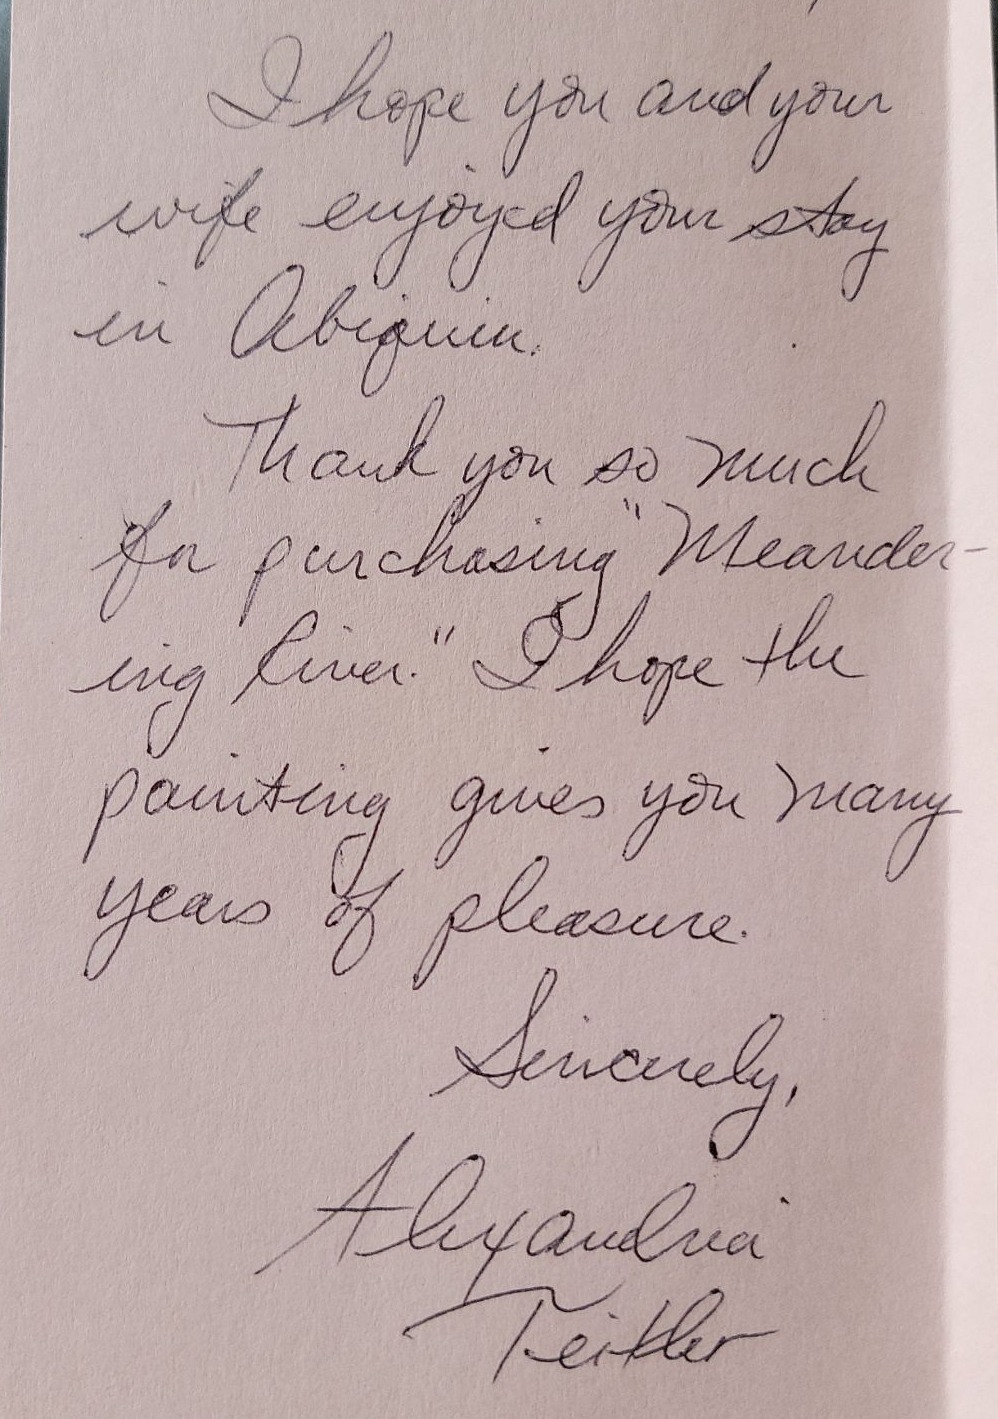 I hope you and your
wife enjoyed your stay
in Abiquiu.
Thank you so much
for purchasing "Meander-
ing River." I hope the
painting gives you many
years of pleasure.
Sincerely,
Alexandria
Teitler